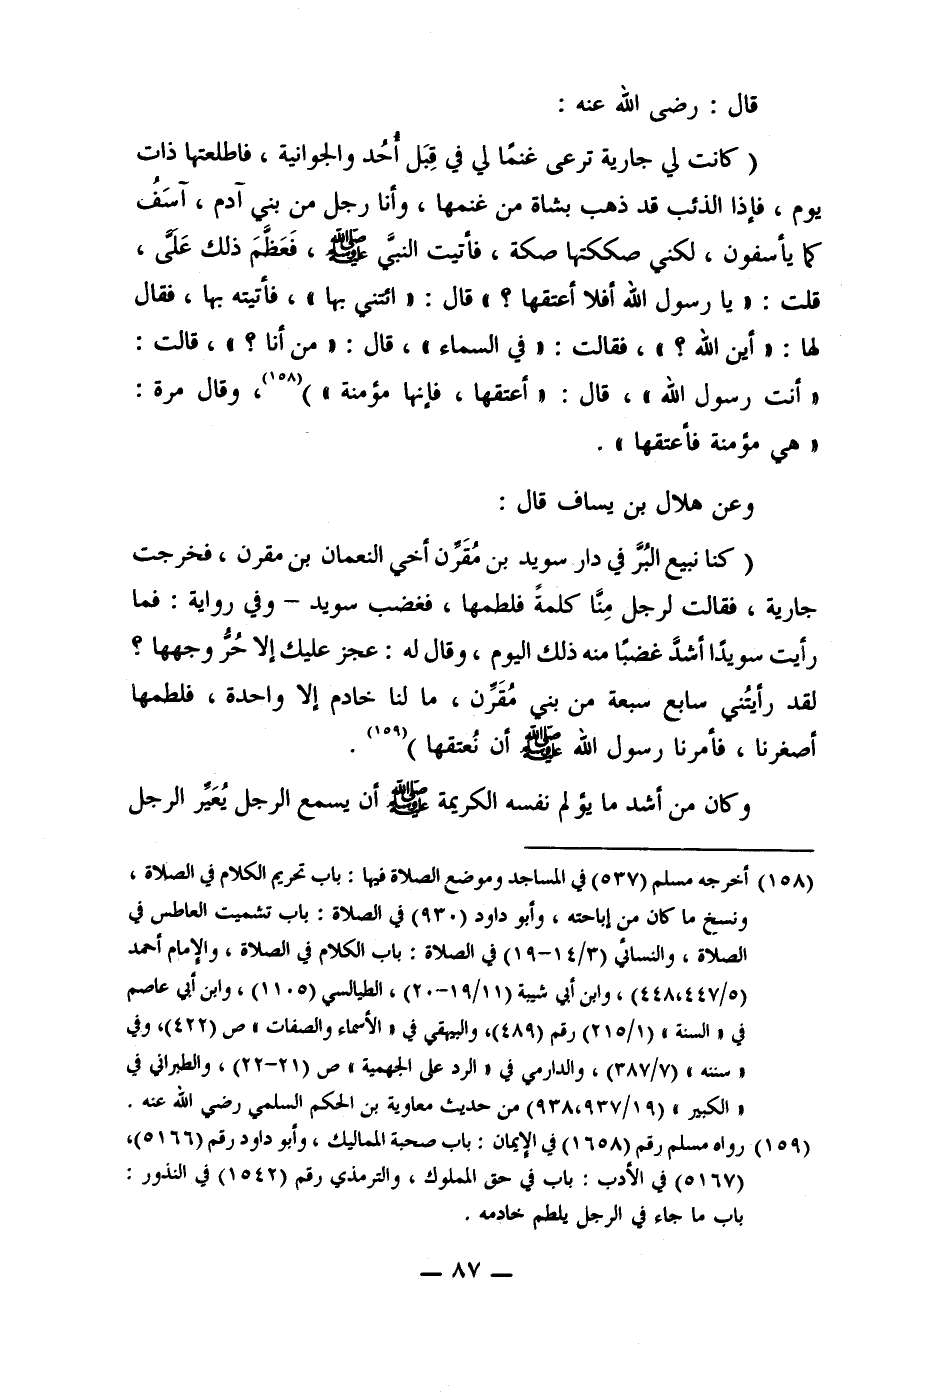 قال : رضى الله عنه :
( كانت لي جارية ترعى غنمًا لي في قِبَل أُحُد والجوانية ، فاطلعتها ذات
يوم ، فإذا الذئب قد ذهب بشاة من غنمها ، وأنا رجل من بني آدم ، آسَفُ
كما يأسفون ، لكني صككتها صكة ، فأتيت النبيَّ ﷺ ، فَعَظَّمَ ذلك عَلَىَّ ،
قلت : « يا رسول الله أفلا أعتقها ؟ » قال : « ائتني بها » ، فأتيته بها ، فقال
لها : « أين الله ؟ » ، فقالت : « في السماء » ، قال : « من أنا ؟ » ، قالت :
« أنت رسول الله » ، قال : « أعتقها ، فإنها مؤمنة » )(١٥٨)، وقال مرة :
« هي مؤمنة فأعتقها » .
وعن هلال بن يساف قال :
( كنا نبيع البُرَّ في دار سويد بن مُقَرِّن أخي النعمان بن مقرن ، فخرجت
جارية ، فقالت لرجل مِنَّا كلمةً فلطمها ، فغضب سويد – وفي رواية : فما
رأيت سويدًا أشدَّ غضبًا منه ذلك اليوم ، وقال له : عجز عليك إلا حُرُّ وجهها ؟
لقد رأيتُني سابع سبعة من بني مُقَرِّن ، ما لنا خادم إلا واحدة ، فلطمها
أصغرنا ، فأمرنا رسول الله ﷺ أن نُعتقها )(١٥٩) .
وكان من أشد ما يؤلم نفسه الكريمة ﷺ أن يسمع الرجل يُعَيِّر الرجل
(١٥٨) أخرجه مسلم (٥٣٧) في المساجد وموضع الصلاة فيها : باب تحريم الكلام في الصلاة ،
ونسخ ما كان من إباحته ، وأبو داود (٩٣٠) في الصلاة : باب تشميت العاطس في
الصلاة ، والنسائي (١٤/٣–١٩) في الصلاة : باب الكلام في الصلاة ، والإمام أحمد
(٤٤٨،٤٤٧/٥) ، وابن أبي شيبة (١٩/١١–٢٠) ، الطيالسي (١١٠٥) ، وابن أبي عاصم
في « السنة » (٢١٥/١) رقم (٤٨٩)، والبيهقي في « الأسماء والصفات » ص (٤٢٢)، وفي
« سننه » (٣٨٧/٧) ، والدارمي في « الرد على الجهمية » ص (٢١–٢٢) ، والطبراني في
« الكبير » (٩٣٨،٩٣٧/١٩) من حديث معاوية بن الحكم السلمي رضي الله عنه .
(١٥٩) رواه مسلم رقم (١٦٥٨) في الإيمان : باب صحبة المماليك ، وأبو داود رقم (٥١٦٦)،
(٥١٦٧) في الأدب : باب في حق المملوك ، والترمذي رقم (١٥٤٢) في النذور :
باب ما جاء في الرجل يلطم خادمه .
— ٨٧ —